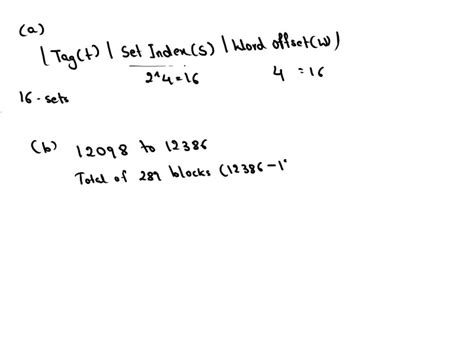 (a)
| Tag(t) | Set Index(s) | Word offset(w)
2^4=16 4 =16
16-sets
(b) 12098 to 12386
Total of 289 blocks (12386-1